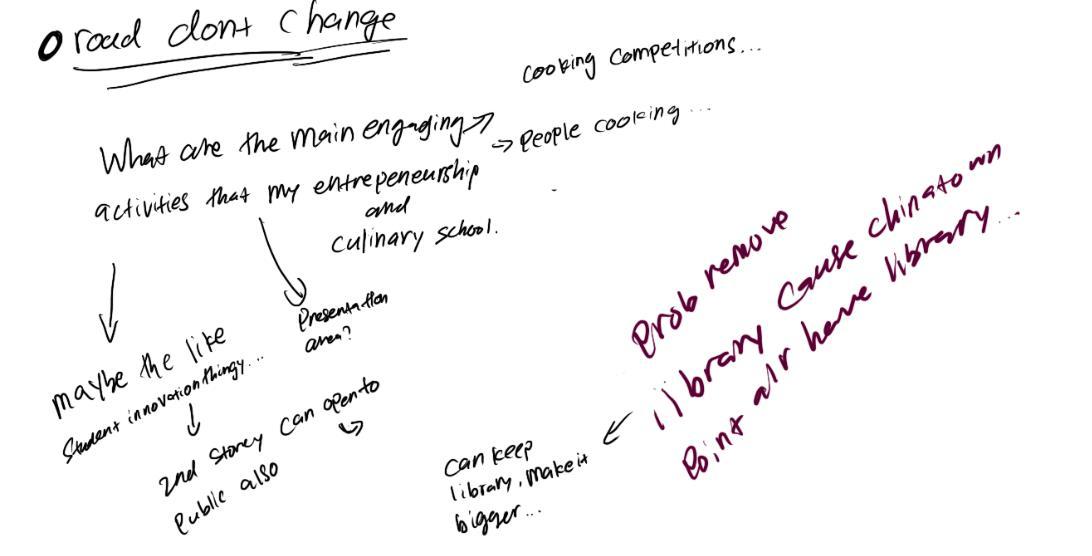 road dont change
What are the main engaging
activities that my entrepeneurship
and
culinary school.
cooking competitions...
People cooking ...
Presentation
area?
maybe the like
Student innovation thingy...
2nd Storey can open to
public also
Prob remove
library cause chinatown
Point alr have library...
can keep
library, make it
bigger...